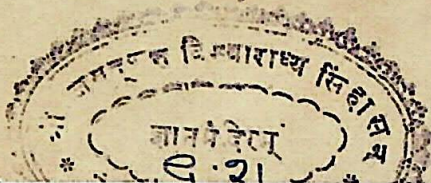 जगद्गुरु विश्वाराध्य सिंहासन
ज्ञानमंदिरम्